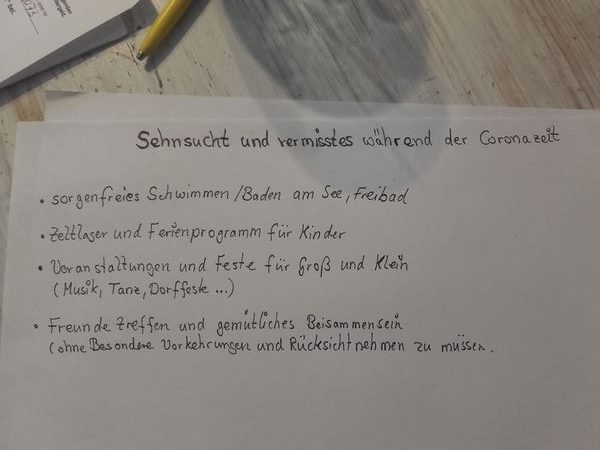 Sehnsucht und vermisstes während der Coronazeit
• sorgenfreies Schwimmen/Baden am See, Freibad
• Zeltlager und Ferienprogramm für Kinder
• Veranstaltungen und Feste für Groß und Klein
(Musik, Tanz, Dorffeste ...)
• Freunde treffen und gemütliches Beisammensein
(ohne Besondere Vorkehrungen und Rücksicht nehmen zu müssen.